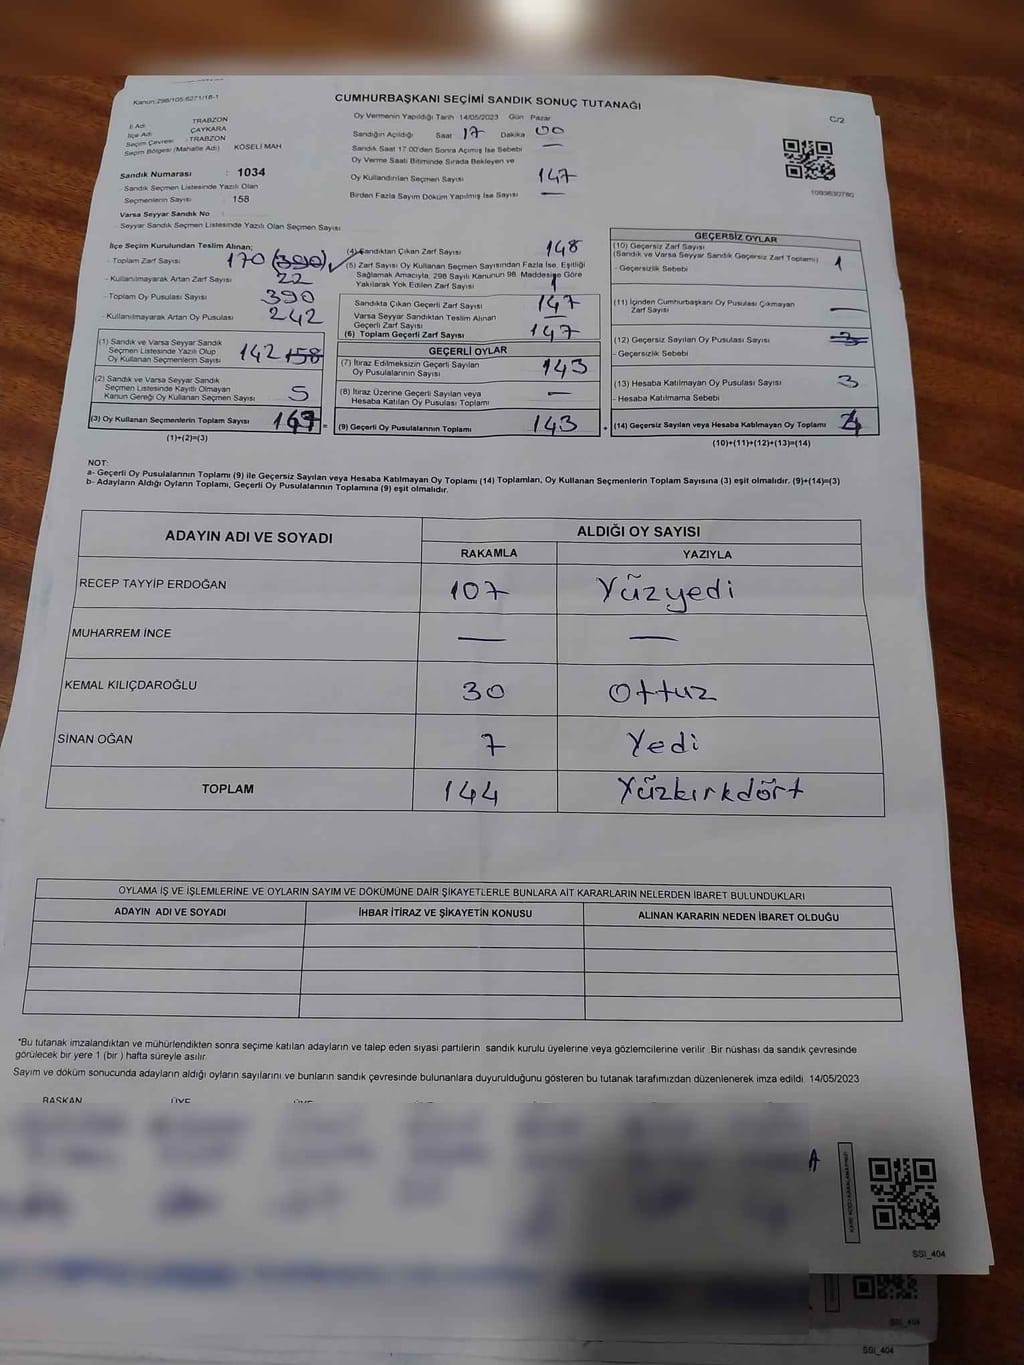 Kanun:298/105-6271/18-1
CUMHURBAŞKANI SEÇİMİ SANDIK SONUÇ TUTANAĞI
C/2
İl Adı TRABZON
İlçe Adı ÇAYKARA
Seçim Çevresi : TRABZON
Seçim Bölgesi (Mahalle Adı) KÖSELİ MAH
Sandık Numarası : 1034
- Sandık Seçmen Listesinde Yazılı Olan
Seçmenlerin Sayısı : 158
Varsa Seyyar Sandık No :
- Seyyar Sandık Seçmen Listesinde Yazılı Olan Seçmen Sayısı
Oy Vermenin Yapıldığı Tarih 14/05/2023 Gün Pazar
Sandığın Açıldığı Saat 17 Dakika 00
Sandık Saat 17:00'den Sonra Açımış İse Sebebi —
Oy Verme Saati Bitiminde Sırada Bekleyen ve
Oy Kullandırılan Seçmen Sayısı 147
Birden Fazla Sayım Döküm Yapılmış İse Sayısı —
1093630780
İlçe Seçim Kurulundan Teslim Alınan;
- Toplam Zarf Sayısı 170 (390)
- Kullanılmayarak Artan Zarf Sayısı 22
- Toplam Oy Pusulası Sayısı 390
- Kullanılmayarak Artan Oy Pusulası 242
(1) Sandık ve Varsa Seyyar Sandık
Seçmen Listesinde Yazılı Olup
Oy Kullanan Seçmenlerin Sayısı 142 158
(2) Sandık ve Varsa Seyyar Sandık
Seçmen Listesinde Kayıtlı Olmayan
Kanun Gereği Oy Kullanan Seçmen Sayısı 5
(3) Oy Kullanan Seçmenlerin Toplam Sayısı 147 =
(1)+(2)=(3)
(4) Sandıktan Çıkan Zarf Sayısı 148
(5) Zarf Sayısı Oy Kullanan Seçmen Sayısından Fazla İse, Eşitliği
Sağlamak Amacıyla, 298 Sayılı Kanunun 98. Maddesine Göre
Yakılarak Yok Edilen Zarf Sayısı 1
Sandıkta Çıkan Geçerli Zarf Sayısı 147
Varsa Seyyar Sandıktan Teslim Alınan
Geçerli Zarf Sayısı —
(6) Toplam Geçerli Zarf Sayısı 147
GEÇERLİ OYLAR
(7) İtiraz Edilmeksizin Geçerli Sayılan
Oy Pusulalarının Sayısı 143
(8) İtiraz Üzerine Geçerli Sayılan veya
Hesaba Katılan Oy Pusulası Toplamı —
(9) Geçerli Oy Pusulalarının Toplamı 143 +
GEÇERSİZ OYLAR
(10) Geçersiz Zarf Sayısı
(Sandık ve Varsa Seyyar Sandık Geçersiz Zarf Toplamı) 1
- Geçersizlik Sebebi
(11) İçinden Cumhurbaşkanı Oy Pusulası Çıkmayan
Zarf Sayısı —
(12) Geçersiz Sayılan Oy Pusulası Sayısı
- Geçersizlik Sebebi
(13) Hesaba Katılmayan Oy Pusulası Sayısı 3
- Hesaba Katılmama Sebebi
(14) Geçersiz Sayılan veya Hesaba Katılmayan Oy Toplamı 4
(10)+(11)+(12)+(13)=(14)
NOT:
a- Geçerli Oy Pusulalarının Toplamı (9) ile Geçersiz Sayılan veya Hesaba Katılmayan Oy Toplamı (14) Toplamları, Oy Kullanan Seçmenlerin Toplam Sayısına (3) eşit olmalıdır. (9)+(14)=(3)
b- Adayların Aldığı Oyların Toplamı, Geçerli Oy Pusulalarının Toplamına (9) eşit olmalıdır.
ADAYIN ADI VE SOYADI ALDIĞI OY SAYISI
RAKAMLA YAZIYLA
RECEP TAYYİP ERDOĞAN 107 Yüzyedi
MUHARREM İNCE — —
KEMAL KILIÇDAROĞLU 30 Ottuz
SİNAN OĞAN 7 Yedi
TOPLAM 144 Yüzkırkdört
OYLAMA İŞ VE İŞLEMLERİNE VE OYLARIN SAYIM VE DÖKÜMÜNE DAİR ŞİKAYETLERLE BUNLARA AİT KARARLARIN NELERDEN İBARET BULUNDUKLARI
ADAYIN ADI VE SOYADI İHBAR İTİRAZ VE ŞİKAYETİN KONUSU ALINAN KARARIN NEDEN İBARET OLDUĞU
*Bu tutanak imzalandıktan ve mühürlendikten sonra seçime katılan adayların ve talep eden siyasi partilerin sandık kurulu üyelerine veya gözlemcilerine verilir. Bir nüshası da sandık çevresinde
görülecek bir yere 1 (bir ) hafta süreyle asılır.
Sayım ve döküm sonucunda adayların aldığı oyların sayılarını ve bunların sandık çevresinde bulunanlara duyurulduğunu gösteren bu tutanak tarafımızdan düzenlenerek imza edildi. 14/05/2023
BAŞKAN ÜYE ÜYE
A
SSI_404
SSI_404
SSI_404